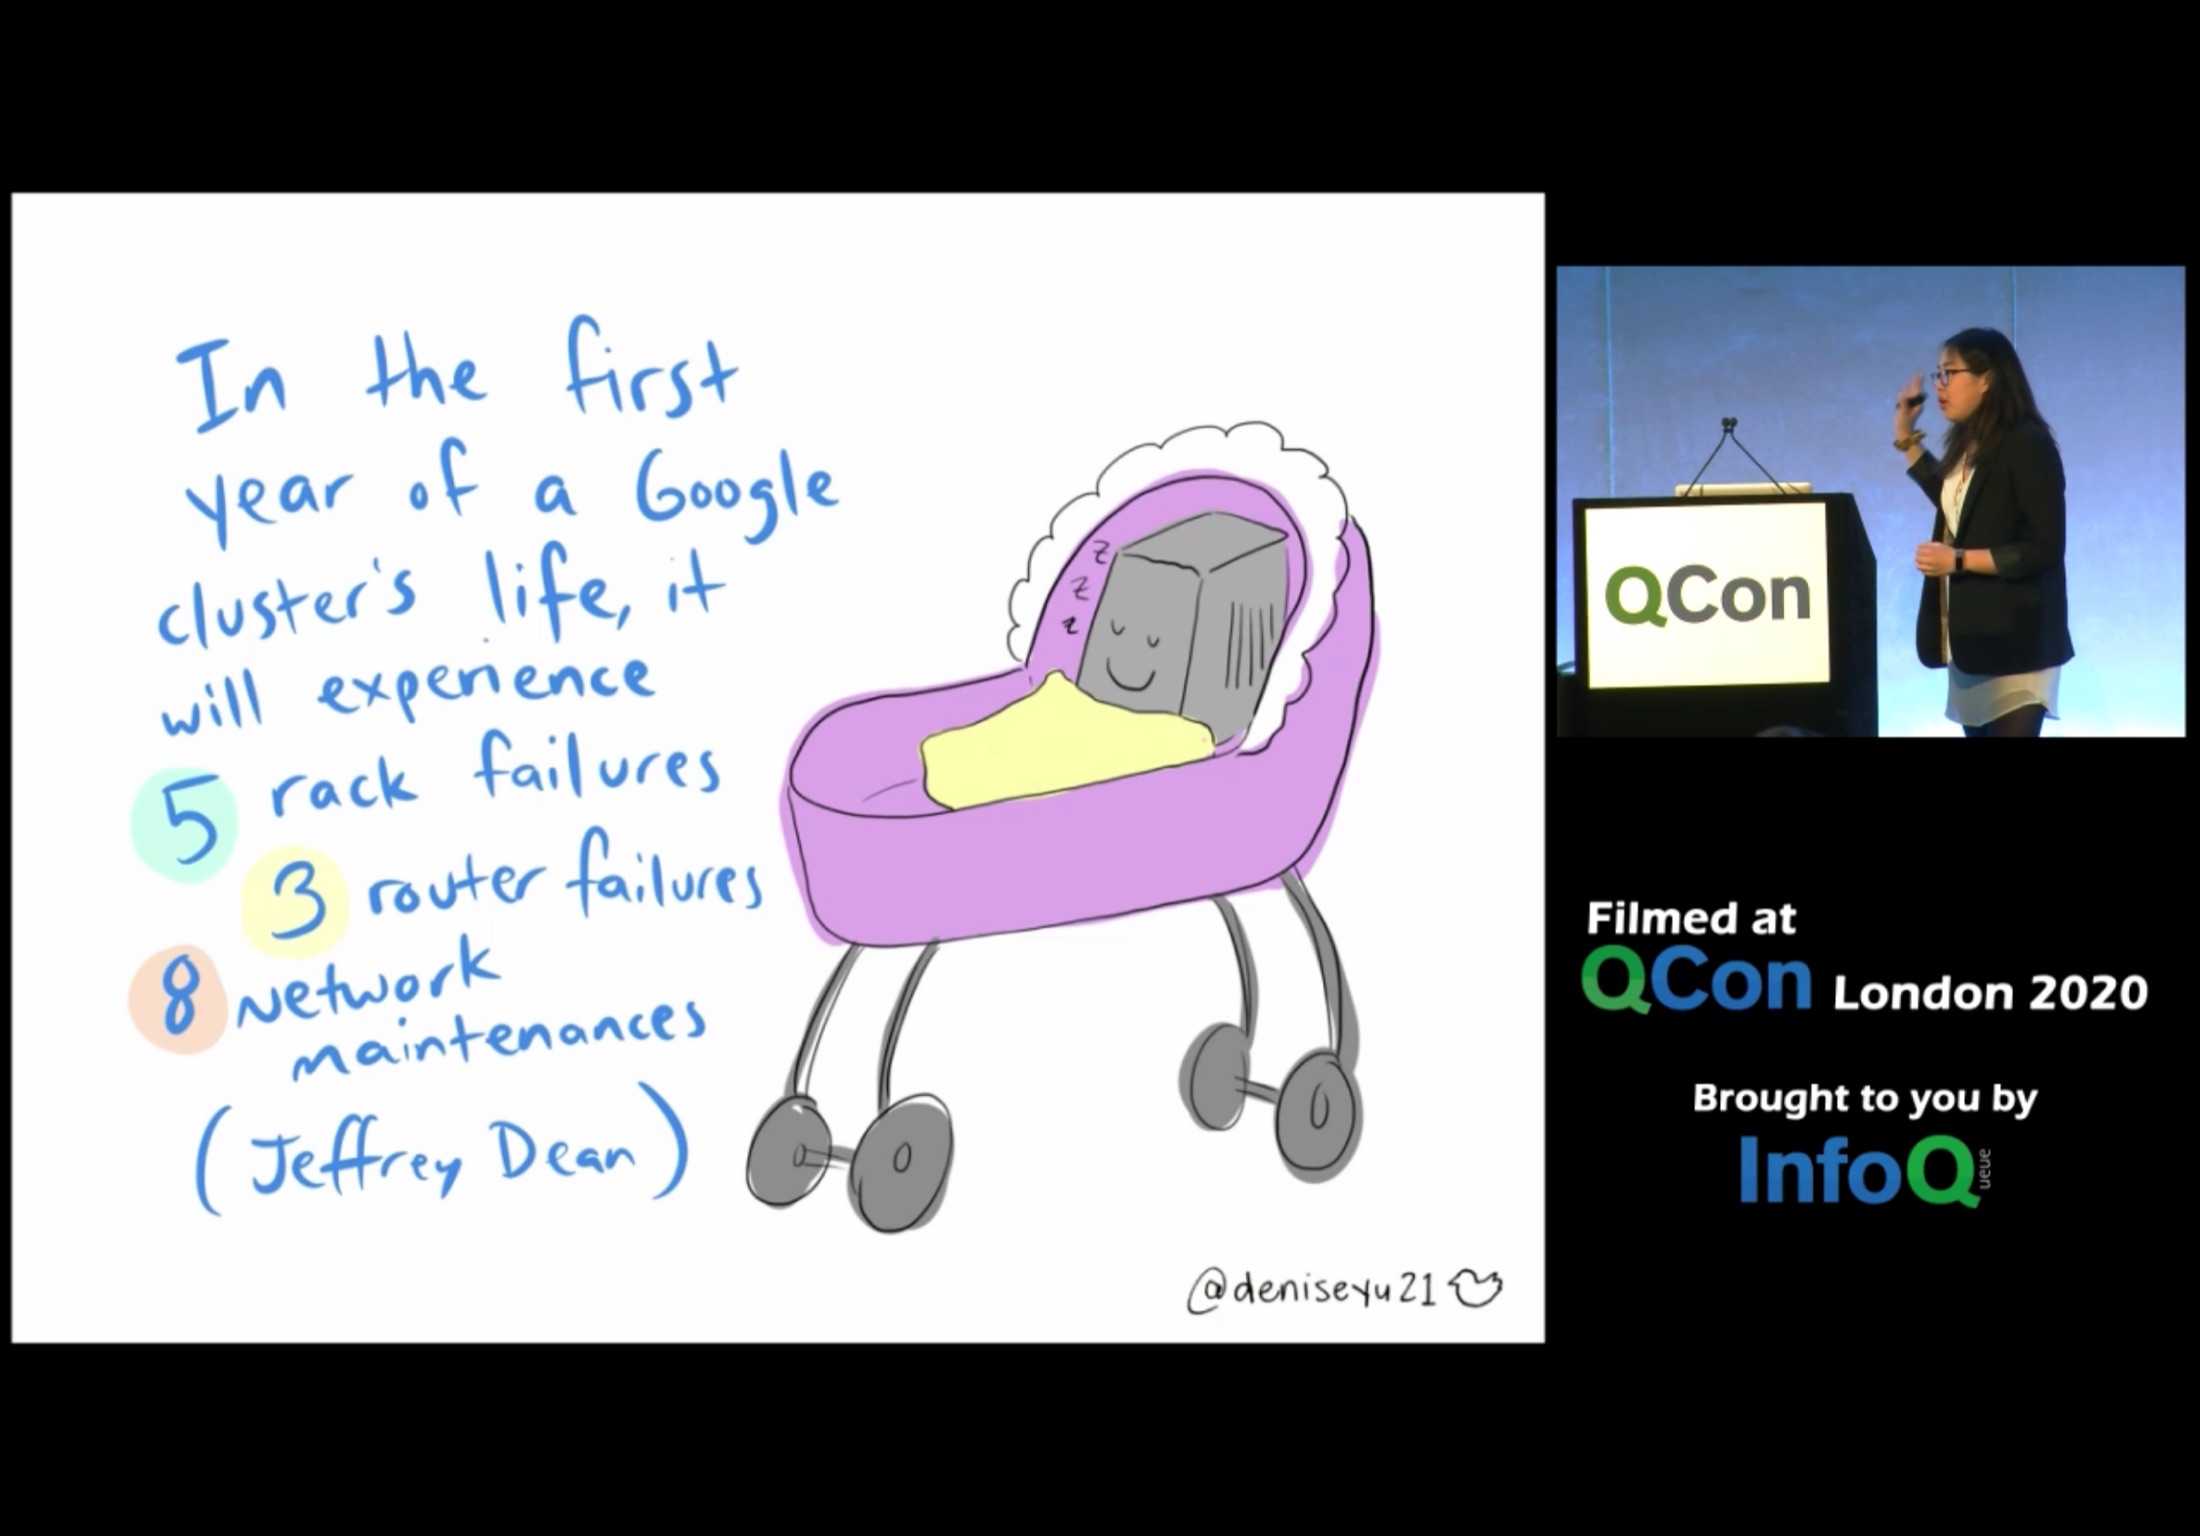 In the first
year of a Google
cluster's life, it
will experience
5 rack failures
3 router failures
8 Network
maintenances
(Jeffrey Dean)
@deniseyu21
QCon
Filmed at
QCon London 2020
Brought to you by
InfoQueue